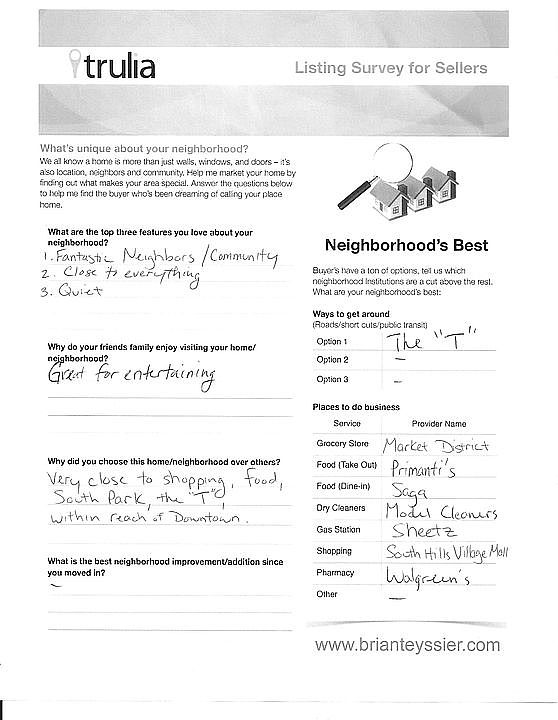 trulia
Listing Survey for Sellers
What's unique about your neighborhood?
We all know a home is more than just walls, windows, and doors – it's
also location, neighbors and community. Help me market your home by
finding out what makes your area special. Answer the questions below
to help me find the buyer who's been dreaming of calling your place
home.
What are the top three features you love about your
neighborhood?
1. Fantastic Neighbors / Community
2. Close to everything
3. Quiet
Why do your friends family enjoy visiting your home/
neighborhood?
Great for entertaining
Why did you choose this home/neighborhood over others?
Very close to shopping, food,
South Park, the "T",
within reach of Downtown.
What is the best neighborhood improvement/addition since
you moved in?
–
Neighborhood's Best
Buyer's have a ton of options, tell us which
neighborhood institutions are a cut above the rest.
What are your neighborhood's best:
Ways to get around
(Roads/short cuts/public transit)
Option 1 The "T"
Option 2 –
Option 3 –
Places to do business
Service Provider Name
Grocery Store Market District
Food (Take Out) Primanti's
Food (Dine-in) Saga
Dry Cleaners Model Cleaners
Gas Station Sheetz
Shopping South Hills Village Mall
Pharmacy Walgreen's
Other –
www.brianteyssier.com